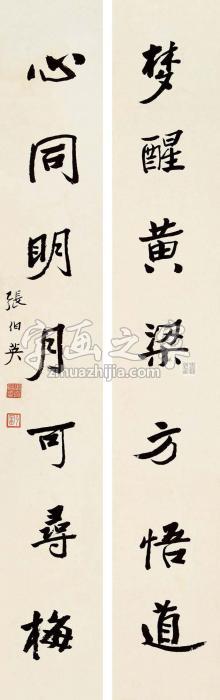 梦醒黄梁方悟道
心同明月可尋梅
張伯英
字画之家
zihuazhijia.com